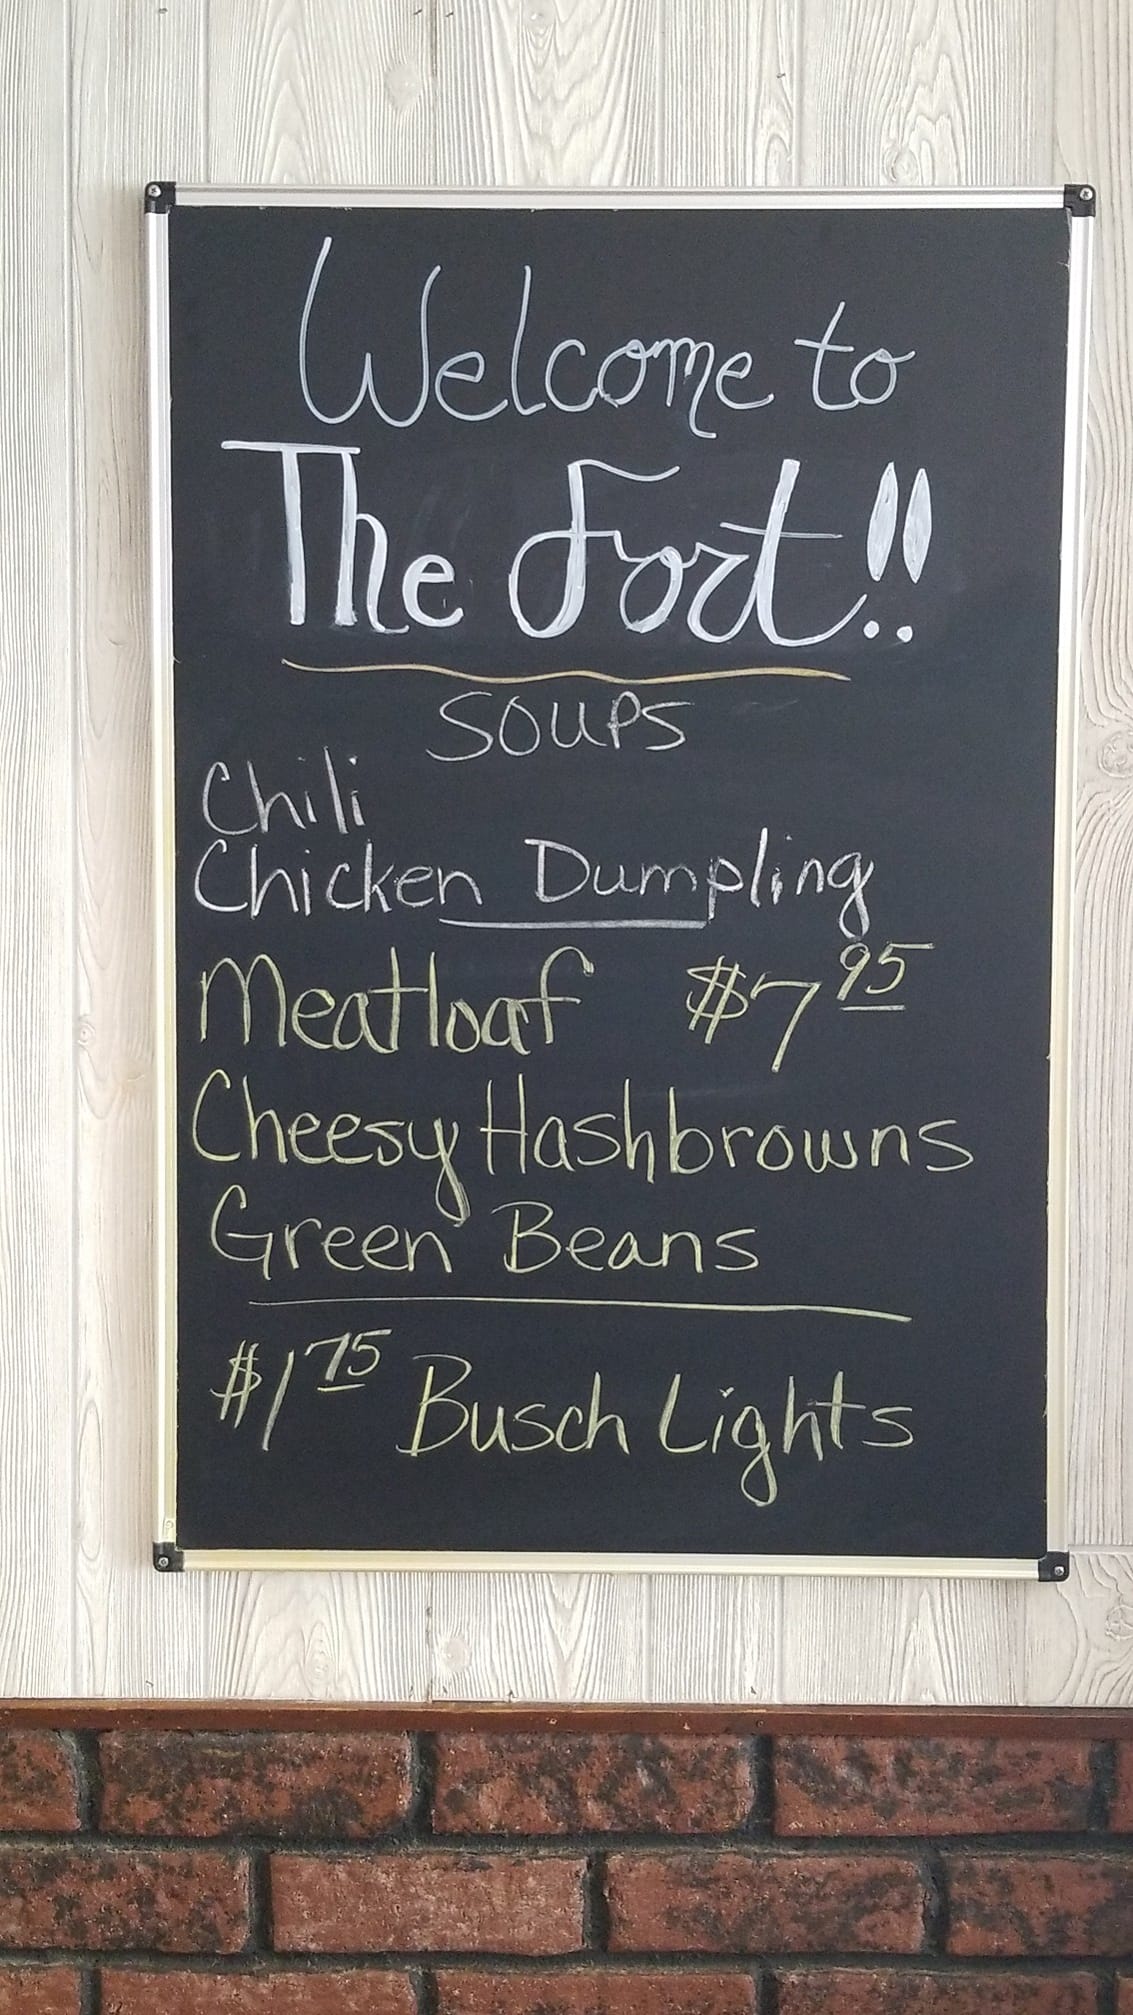 Welcome to
The Fort!!
SOUPS
Chili
Chicken Dumpling
Meatloaf $7 95
Cheesy Hashbrowns
Green Beans
$1 75 Busch Lights